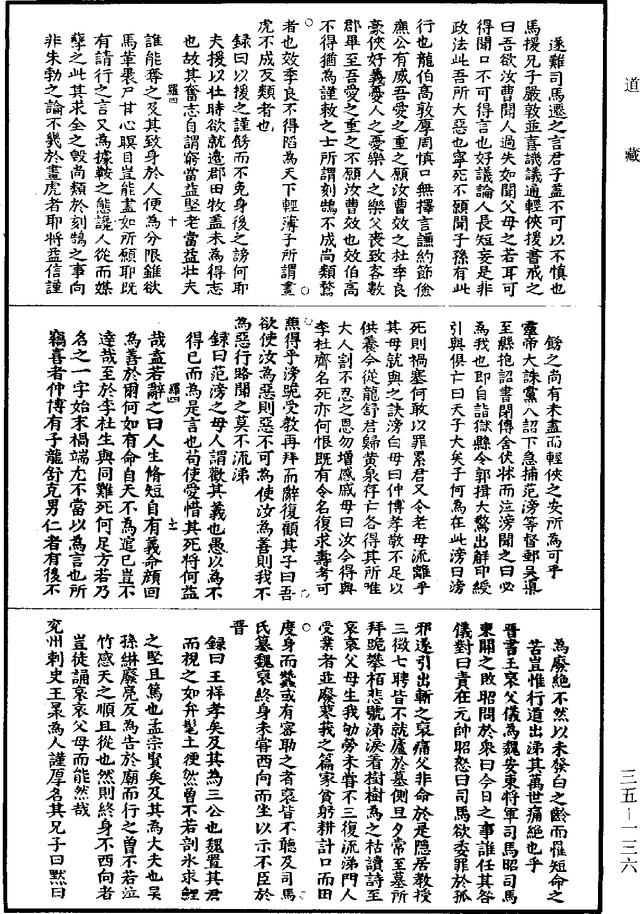 道藏
遂難司馬遷之言君子蓋不可以不慎也
馬援兄子嚴敦並喜譏議通輕俠援書戒之
曰吾欲汝曹聞人過失如聞父母之名耳可
得聞口不可得言也好議論人長短妄是非
政法此吾所大惡也寧死不願聞子孫有此
行也龍伯高敦厚周慎口無擇言謙約節儉
廉公有威吾愛之重之願汝曹效之杜季良
豪俠好義憂人之憂樂人之樂父喪致客數
郡畢至吾愛之重之不願汝曹效也效伯高
不得猶為謹敕之士所謂刻鵠不成尚類鶩
者也效季良不得陷為天下輕薄子所謂畫
虎不成反類者也
録曰以援之謹飭而不免身後之謗何耶
夫援以壯時欲就邊郡田牧蓋未為得志
也故其奮志自謂窮當益堅老當益壯夫
羅四
十
誰能奪之及其致身於人便為分限雖欲
馬革裹尸甘心瞑目豈能盡如所願耶既
有請行之言又為據鞍之態讒人從而媒
孽之此其求全之毀尚類於刻鵠之事向
非朱勃之論不幾於畫虎者耶將益信謹
飭之尚有未盡而輕俠之安所為可乎
靈帝大誅黨人詔下急捕范滂等督郵吳導
至縣抱詔書閉傳舍伏牀而泣滂聞之曰必
為我也即自詣獄縣令郭揖大驚出解印綬
引與俱亡曰天子大矣子何為在此滂曰滂
死則禍塞何敢以罪累君又令老母流離乎
其母就與之訣滂白母曰仲博孝敬不足以
供養今從龍舒君歸黃泉存亡各得其所惟
大人割不忍之恩勿增感戚母曰汝今得與
李杜齊名死亦何恨既有令名復求壽考可
兼得乎滂跪受教再拜而辭復顧其子曰吾
欲使汝為惡則惡不可為使汝為善則我不
為惡行路聞之莫不流涕
録曰范滂之母人謂觀其義也愚以為不
得已而為是言也苟使愛惜其死將何益
羅四
十一
哉盍若辭之曰人生脩短自有義命顏回
為善於爾何如有命自天不為遑已豈不
達哉至於李杜生與同難死何足方若乃
名之一字始末禍端尤不當以為言也所
竊喜者仲博有子龍舒克男仁者有後不
為廢絕不然以未發白之齡而罹短命之
苦豈惟行道出涕其萬世痛絕也乎
晉書王裒父儀為魏安東將軍司馬昭司馬
東關之敗昭問於衆曰今日之事誰任其咎
儀對曰責在元帥昭怒曰司馬欲委罪於孤
邪遂引出斬之裒痛父非命於是隱居教授
三徵七聘皆不就廬於墓側旦夕常至墓所
拜跪攀栢悲號涕淚着樹樹為之枯讀詩至
哀哀父母生我劬勞未甞不三復流涕門人
受業者並廢蓼莪之篇家貧躬耕計口而田
度身而蠶或有客助之者裒皆不聽及司馬
氏篡魏裒終身未甞西向而坐以示不臣於
晉
録曰王祥孝矣及其為三公也魏置其君
而視之如弁髦土梗然曽不若剖氷求鯉
之堅且篤也孟宗賢矣及其為大夫也吳
孫綝廢亮反為告於廟而行之曽不若泣
竹感天之順且從也然則終身不西向者
豈徒誦哀哀父母而能然哉
兖州刺史王㫤為人謹厚名其兄子曰黙曰
三五—一三六